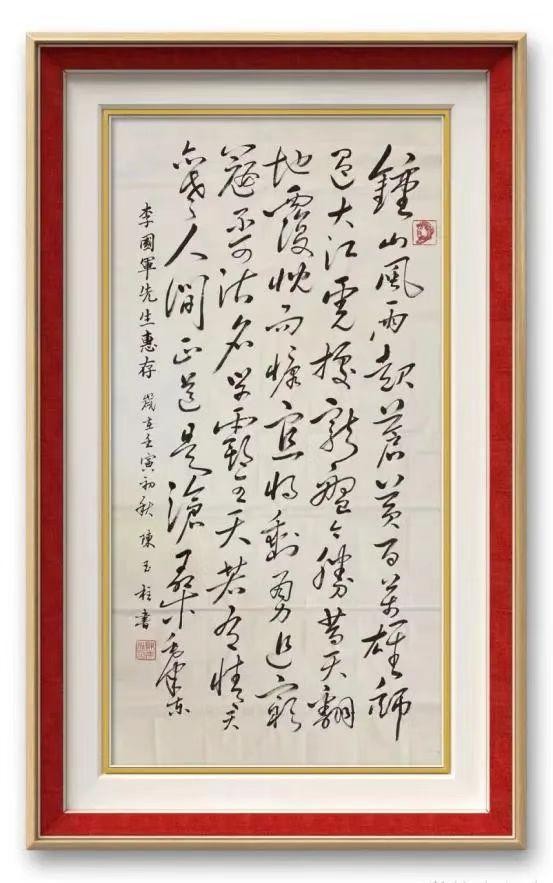 鍾山風雨起蒼黃百萬雄師
過大江虎據龍盤今勝昔天翻
地覆慨而慷宜將剩勇追窮
寇不可沽名學霸王天若有情天
亦老人間正道是滄桑毛澤東
李國軍先生惠存 歲在壬寅初秋 陳玉柱書